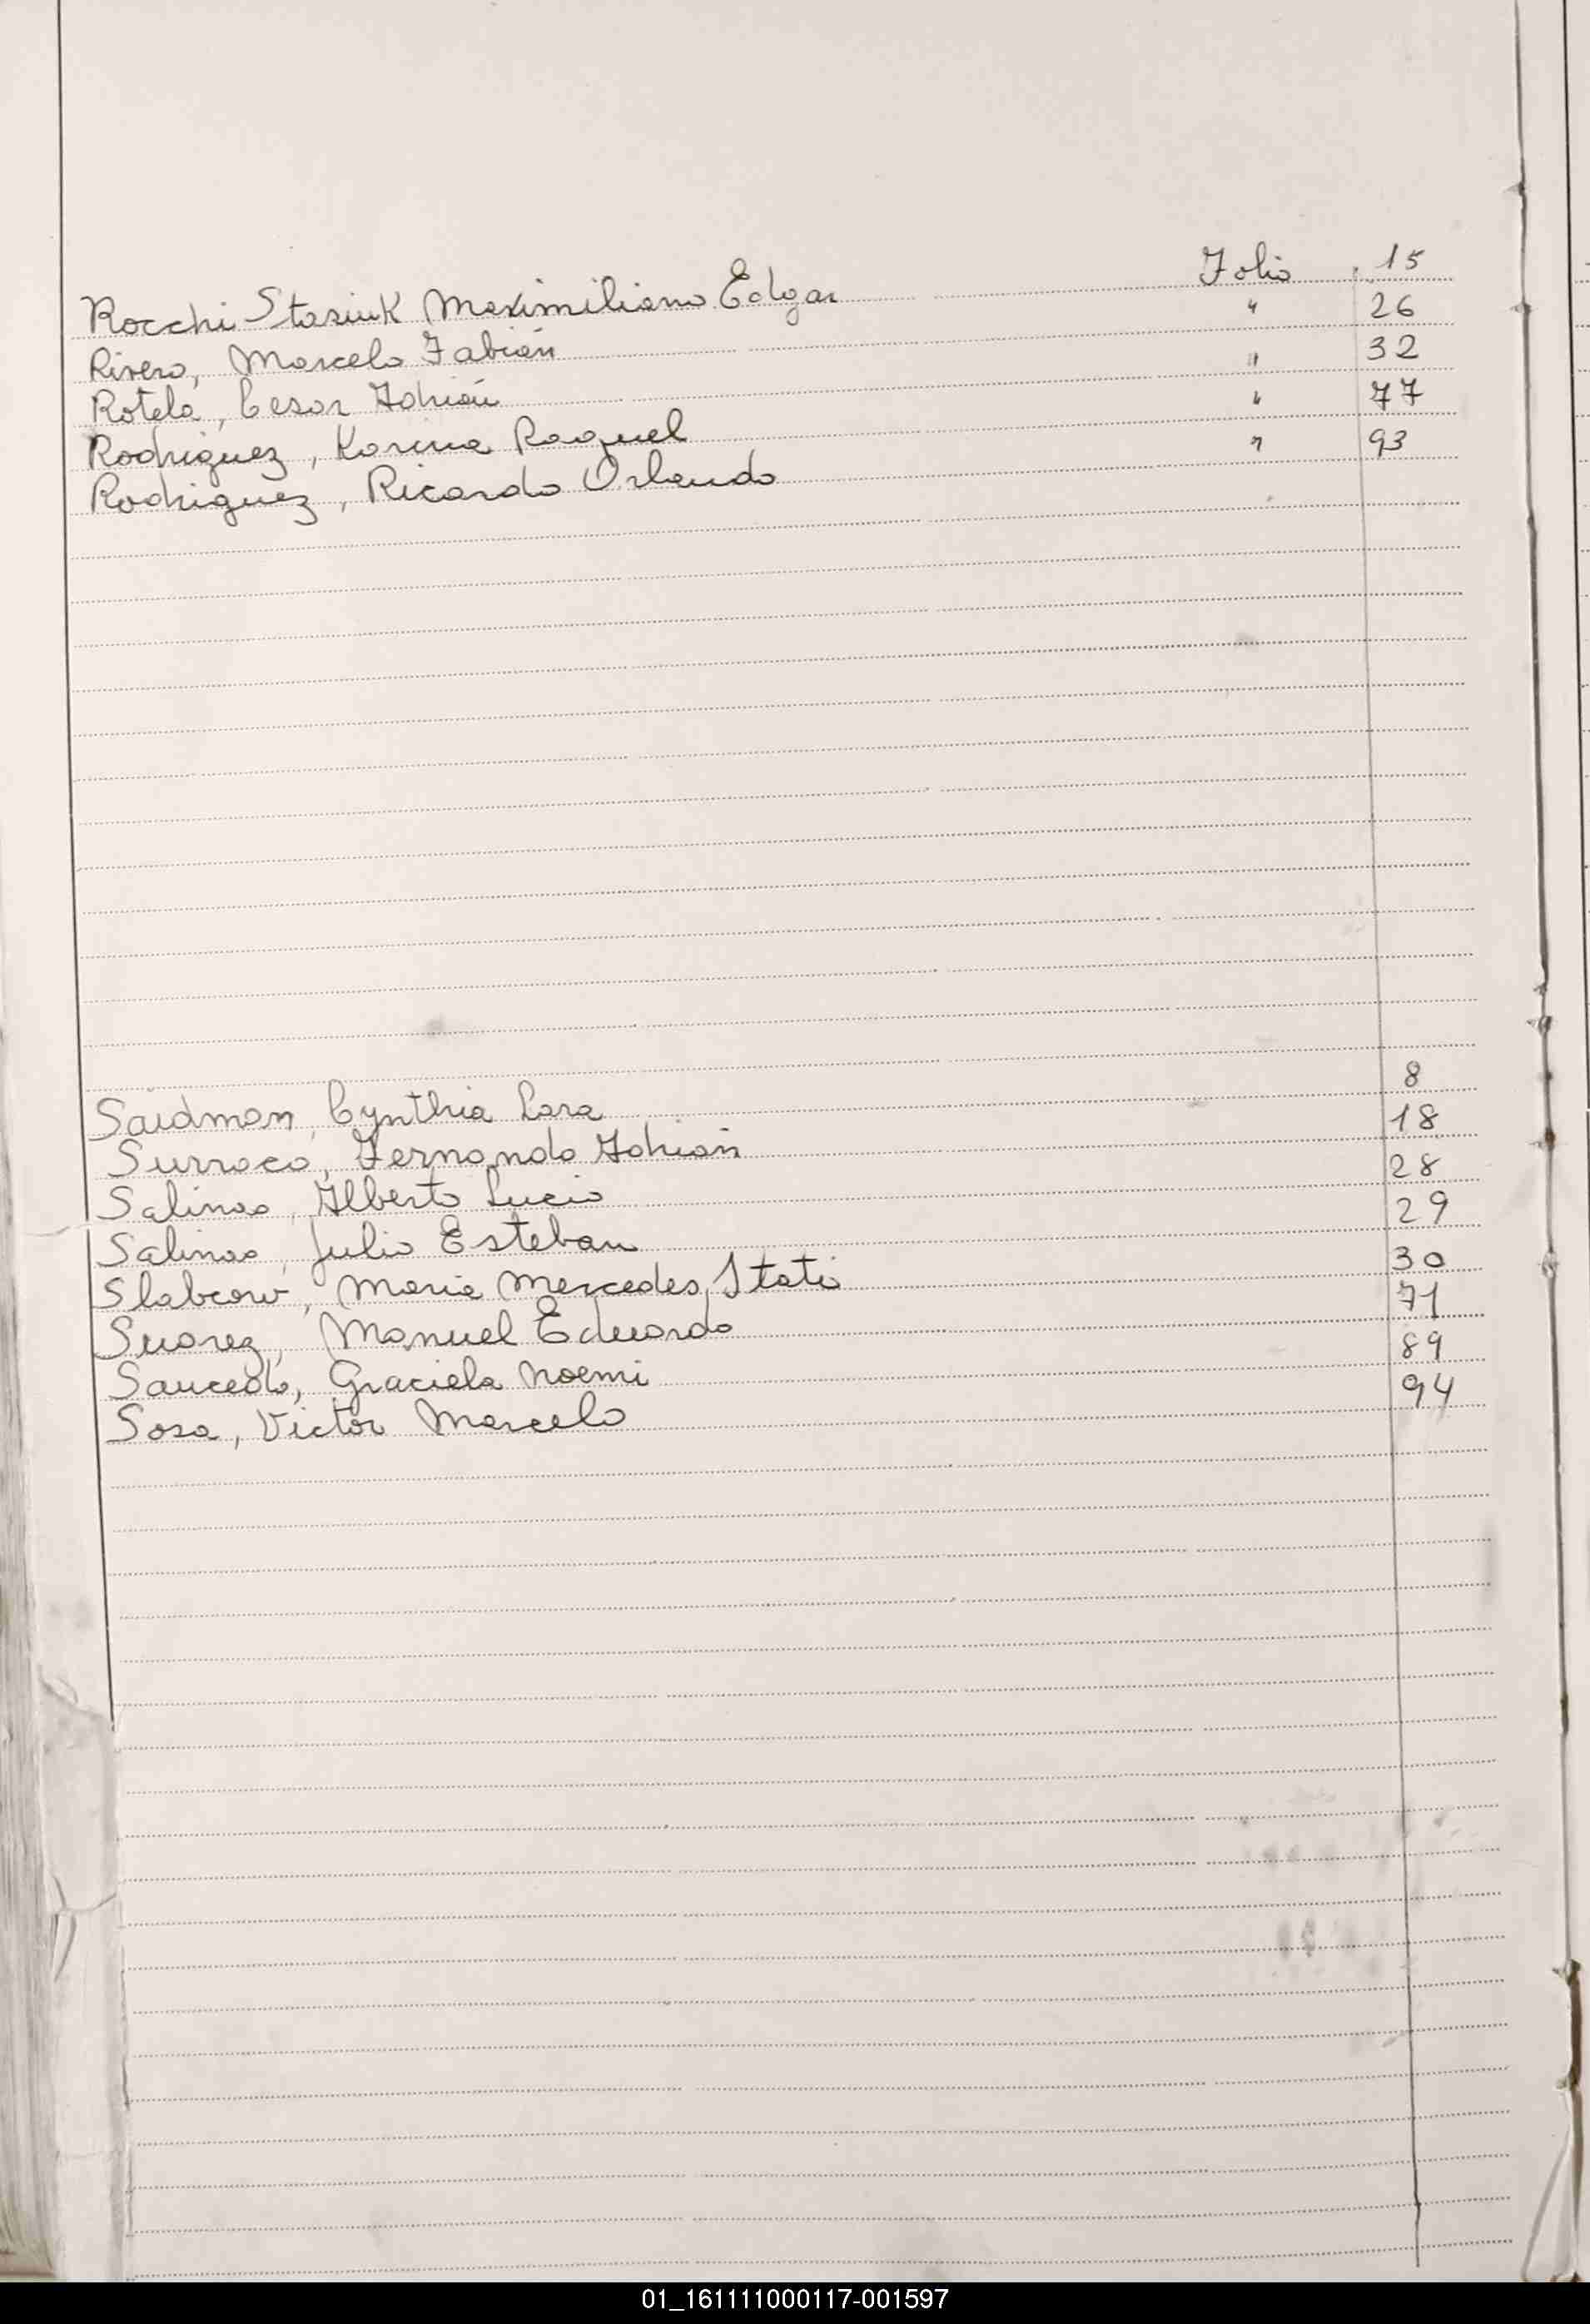 Rocchi Stasiuk Maximiliano Edgar Folio 15
Rivero, Marcelo Fabián " 26
Rotela, Cesar Adrián " 32
Rodriguez, Karina Raquel " 77
Rodriguez, Ricardo Orlando " 93
Saidman, Cynthia Lara 8
Surraco, Fernando Adrián 18
Salinas, Alberto Lucio 28
Salinas, Julio Esteban 29
Slabcow, Maria Mercedes Itati 30
Suarez, Manuel Eduardo 71
Saucedo, Graciela Noemi 89
Sosa, Victor Marcelo 94
01_161111000117-001597